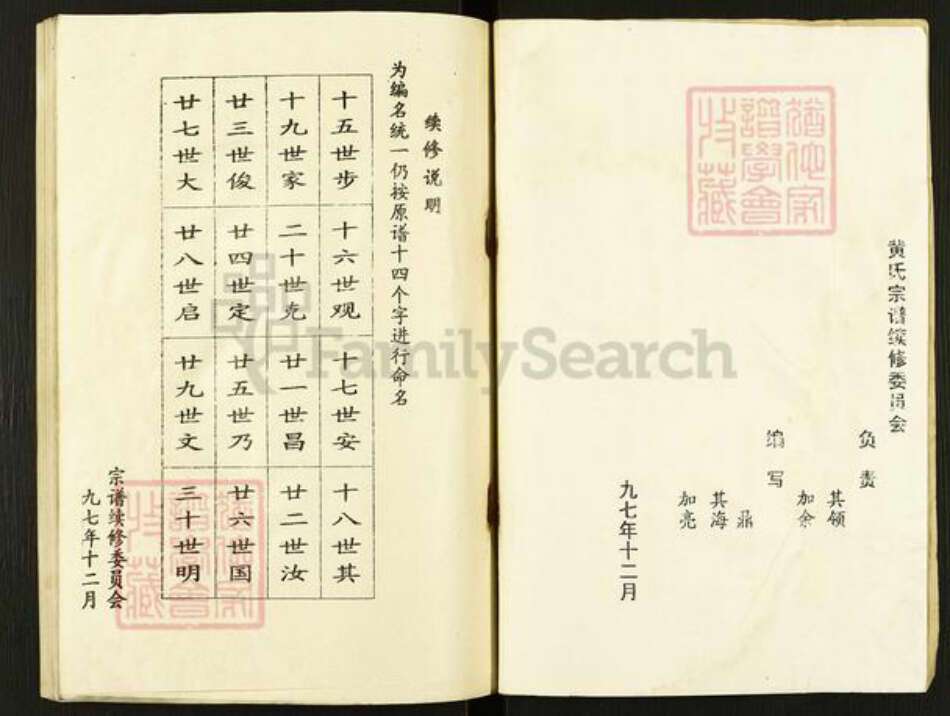 黄氏宗谱续修委员会
负责
其领
加余
编写
鼎
其海
加亮
九七年十二月
续修说明
为编名统一仍按原谱十四个字进行命名
十五世步
十六世观
十七世安
十八世其
十九世家
二十世克
廿一世昌
廿二世汝
廿三世俊
廿四世定
廿五世乃
廿六世国
廿七世大
廿八世启
廿九世文
三十世明
宗谱续修委员会
九七年十二月
FamilySearch